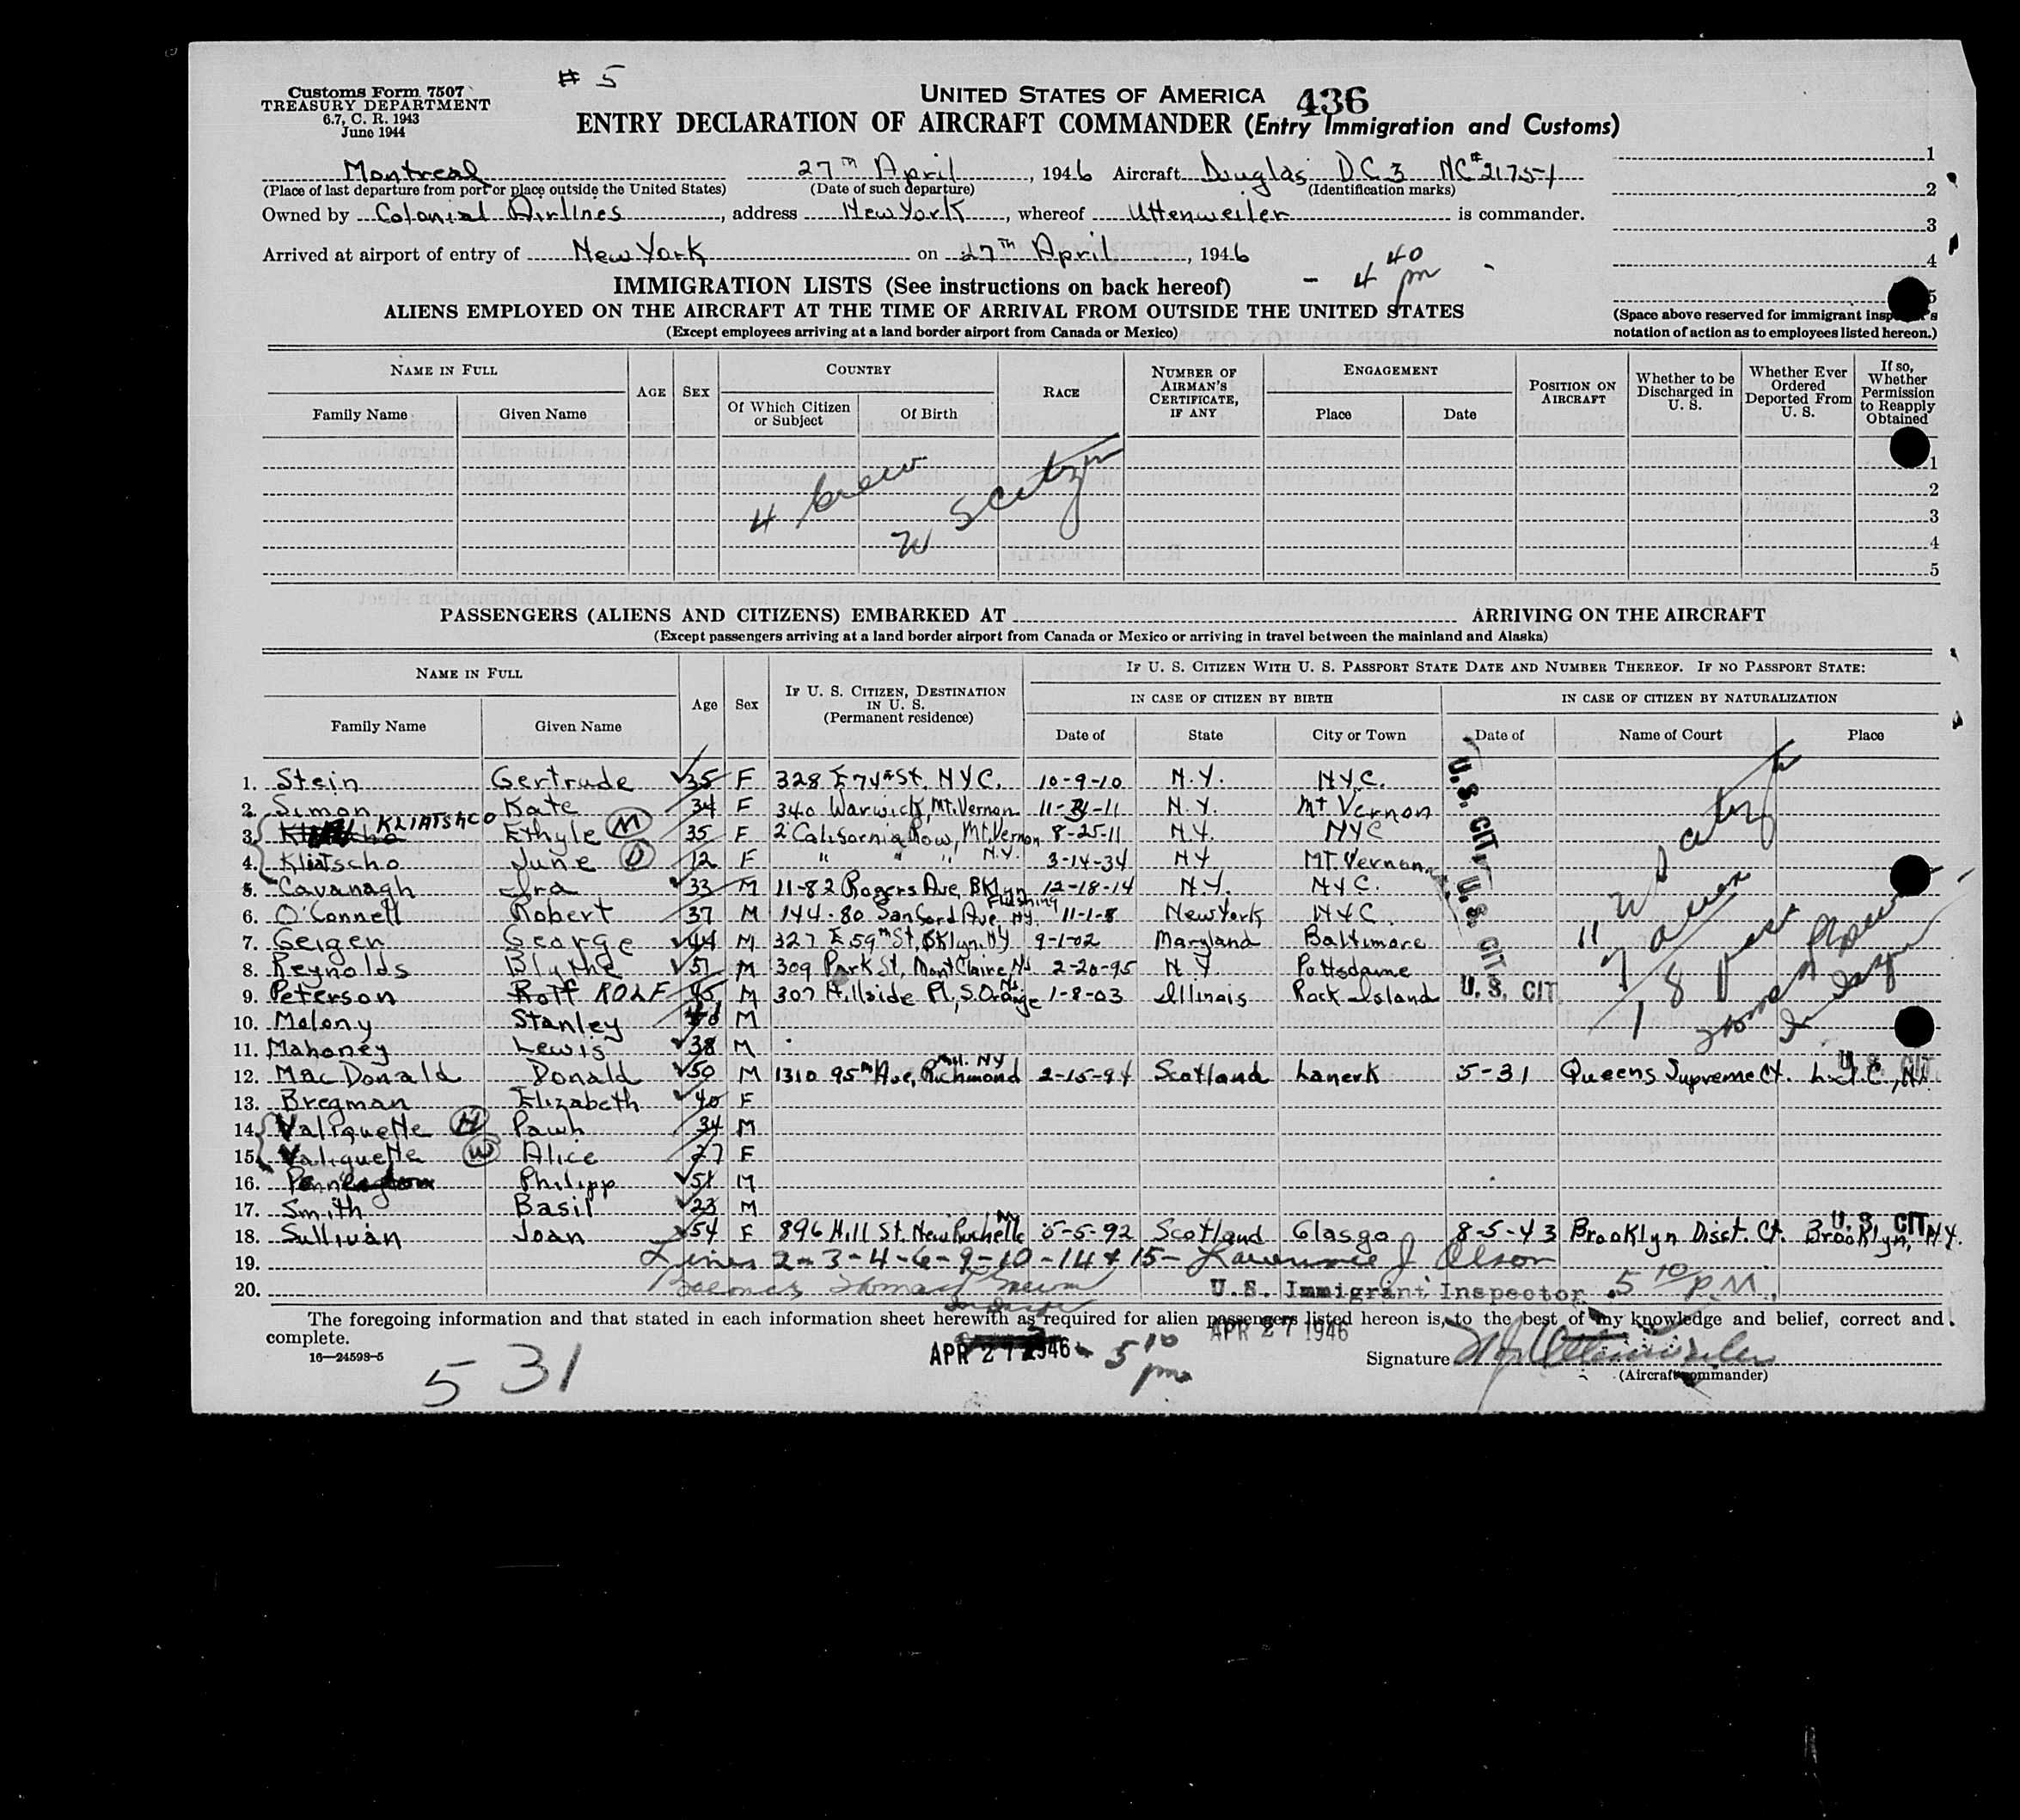 # 5
Customs Form 7507
TREASURY DEPARTMENT
6.7, C. R. 1943
June 1944
UNITED STATES OF AMERICA 436
ENTRY DECLARATION OF AIRCRAFT COMMANDER (Entry Immigration and Customs)
Montreal 27th April, 1946 Aircraft Douglas DC3 NC#21754
(Place of last departure from port or place outside the United States) (Date of such departure) (Identification marks)
Owned by Colonial Airlines, address New York, whereof Uttenweiler is commander.
Arrived at airport of entry of New York on 27th April, 1946
1
2
3
4
5
- 4 40 pm -
IMMIGRATION LISTS (See instructions on back hereof)
ALIENS EMPLOYED ON THE AIRCRAFT AT THE TIME OF ARRIVAL FROM OUTSIDE THE UNITED STATES
(Except employees arriving at a land border airport from Canada or Mexico)
(Space above reserved for immigrant inspector's
notation of action as to employees listed hereon.)
NAME IN FULL
Family Name Given Name
AGE SEX
COUNTRY
Of Which Citizen or Subject
Of Birth
RACE
NUMBER OF AIRMAN'S CERTIFICATE, IF ANY
ENGAGEMENT
Place Date
POSITION ON AIRCRAFT
Whether to be Discharged in U. S.
Whether Ever Ordered Deported From U. S.
If so, Whether Permission to Reapply Obtained
1
2
3
4
5
4 crew
PASSENGERS (ALIENS AND CITIZENS) EMBARKED AT ARRIVING ON THE AIRCRAFT
(Except passengers arriving at a land border airport from Canada or Mexico or arriving in travel between the mainland and Alaska)
NAME IN FULL
Family Name Given Name
Age Sex
IF U. S. CITIZEN, DESTINATION IN U. S. (Permanent residence)
IF U. S. CITIZEN WITH U. S. PASSPORT STATE DATE AND NUMBER THEREOF. IF NO PASSPORT STATE:
IN CASE OF CITIZEN BY BIRTH
IN CASE OF CITIZEN BY NATURALIZATION
Date of State City or Town Date of Name of Court Place
1. Stein Gertrude 35 F 328 E 74th St. NYC. 10-9-10 N.Y. NYC. U.S. CIT.
2. Simon Kate 34 F 340 Warwick, Mt. Vernon 11-11 N.Y. Mt Vernon
3. KLIATSHCO Ethyle (M) 35 F 2 California Row, Mt. Vernon N.Y. 8-25-11 N.Y. NYC
4. Kliatscho June (D) 12 F " " " 3-14-34 NY MT. Vernon
5. Cavanagh Ira 33 M 11-82 Rogers Ave, BKlyn 12-18-14 N.Y. NYC. U.S. CIT.
6. O'Connell Robert 37 M 144-80 Sanford Ave Flushing NY 11-1-8 New York NYC
7. Geigen George 44 M 327 E 59th St, BKlyn. NY 9-1-02 Maryland Baltimore
8. Reynolds Blythe 51 M 309 Park St, Mont Claire, NJ 2-20-95 NY Pottsdame
9. Peterson Rolf ROLF 45 M 307 Hillside Pl, S. Orange NJ 1-8-03 Illinois Rock Island U.S. CIT.
10. Malony Stanley M
11. Mahoney Lewis 38 M
12. MacDonald Donald 50 M 1310 95th Ave, Richmond Hill NY 2-15-94 Scotland Lanerk 5-31 Queens Supreme Ct. L.I.C., NY. U.S. CIT
13. Bregman Elizabeth 40 F
14. Valiquette (H) Pawh 34 M
15. Valiquette (W) Alice 27 F
16. Philipp 51 M
17. Smith Basil 23 M
18. Sullivan Joan 54 F 896 Hill St. New Rochelle NY 5-5-92 Scotland Glasgo 8-5-43 Brooklyn Disct. Ct. Brooklyn, NY. U.S. CIT.
19. Lines 2-3-4-6-9-10-14 & 15- Lawrence J Olson
20. U.S. Immigrant Inspector 5 10 P.M.
The foregoing information and that stated in each information sheet herewith as required for alien passengers listed hereon is, to the best of my knowledge and belief, correct and
complete.
16—24593-5
APR 27 1946 5 10 pm
APR 27 1946
Signature
(Aircraft commander)
5 31